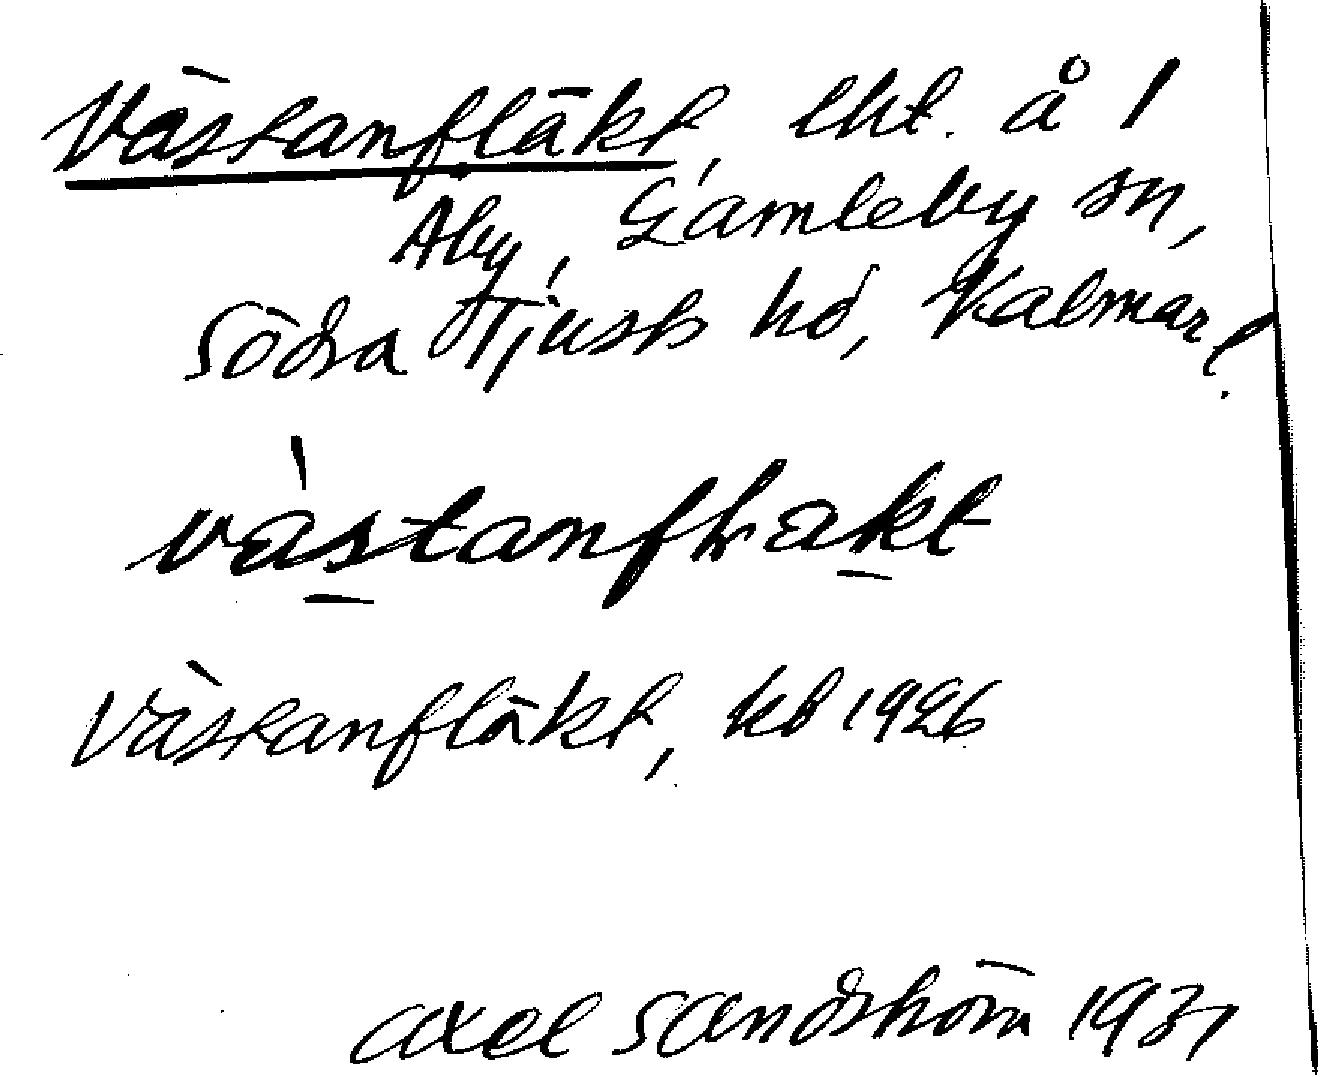 Västanfläkt, lht. å 1
Åby, Gamleby sn,
Södra Tjusts hd, Kalmar l.
Västanfläkt, kb 1926
Axel Sandström 1931